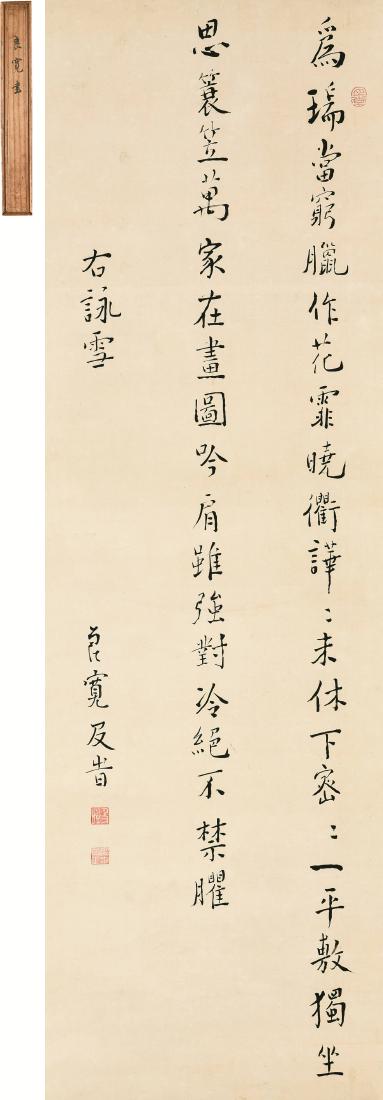 爲瑞當窮臘作花霏曉衢譁〻未休下密〻一平敷獨坐
思蓑笠萬家在畫圖吟肩雖強對冷絕不禁臞
右詠雪
良寛
良寛書